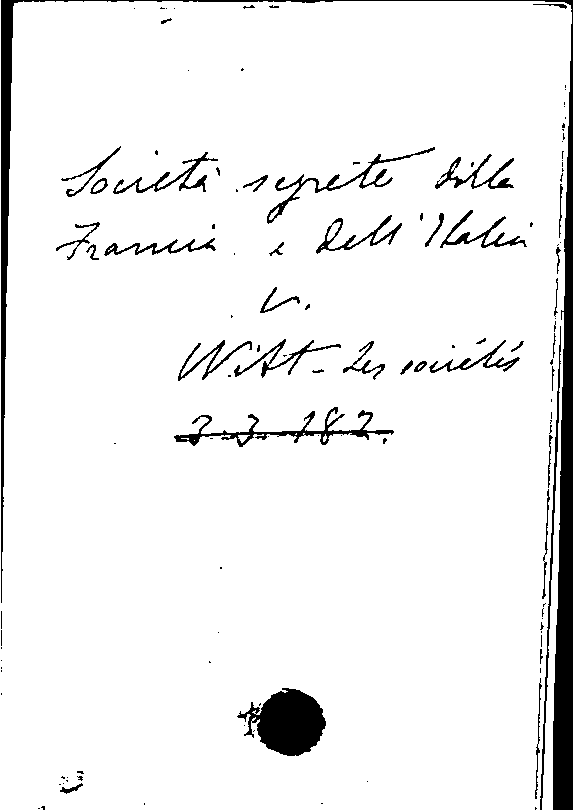 Società segrete della
Francia e dell'Italia
v.
Witt - Les sociétés
3.3.182.